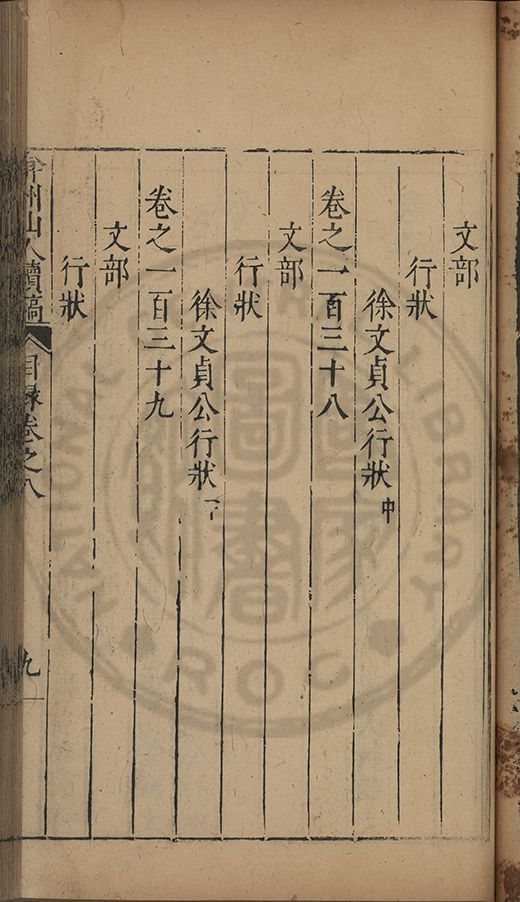 文部
行狀
徐文貞公行狀中
卷之一百三十八
文部
行狀
徐文貞公行狀下
卷之一百三十九
文部
行狀
弇州山人續稿 目錄卷之八 九